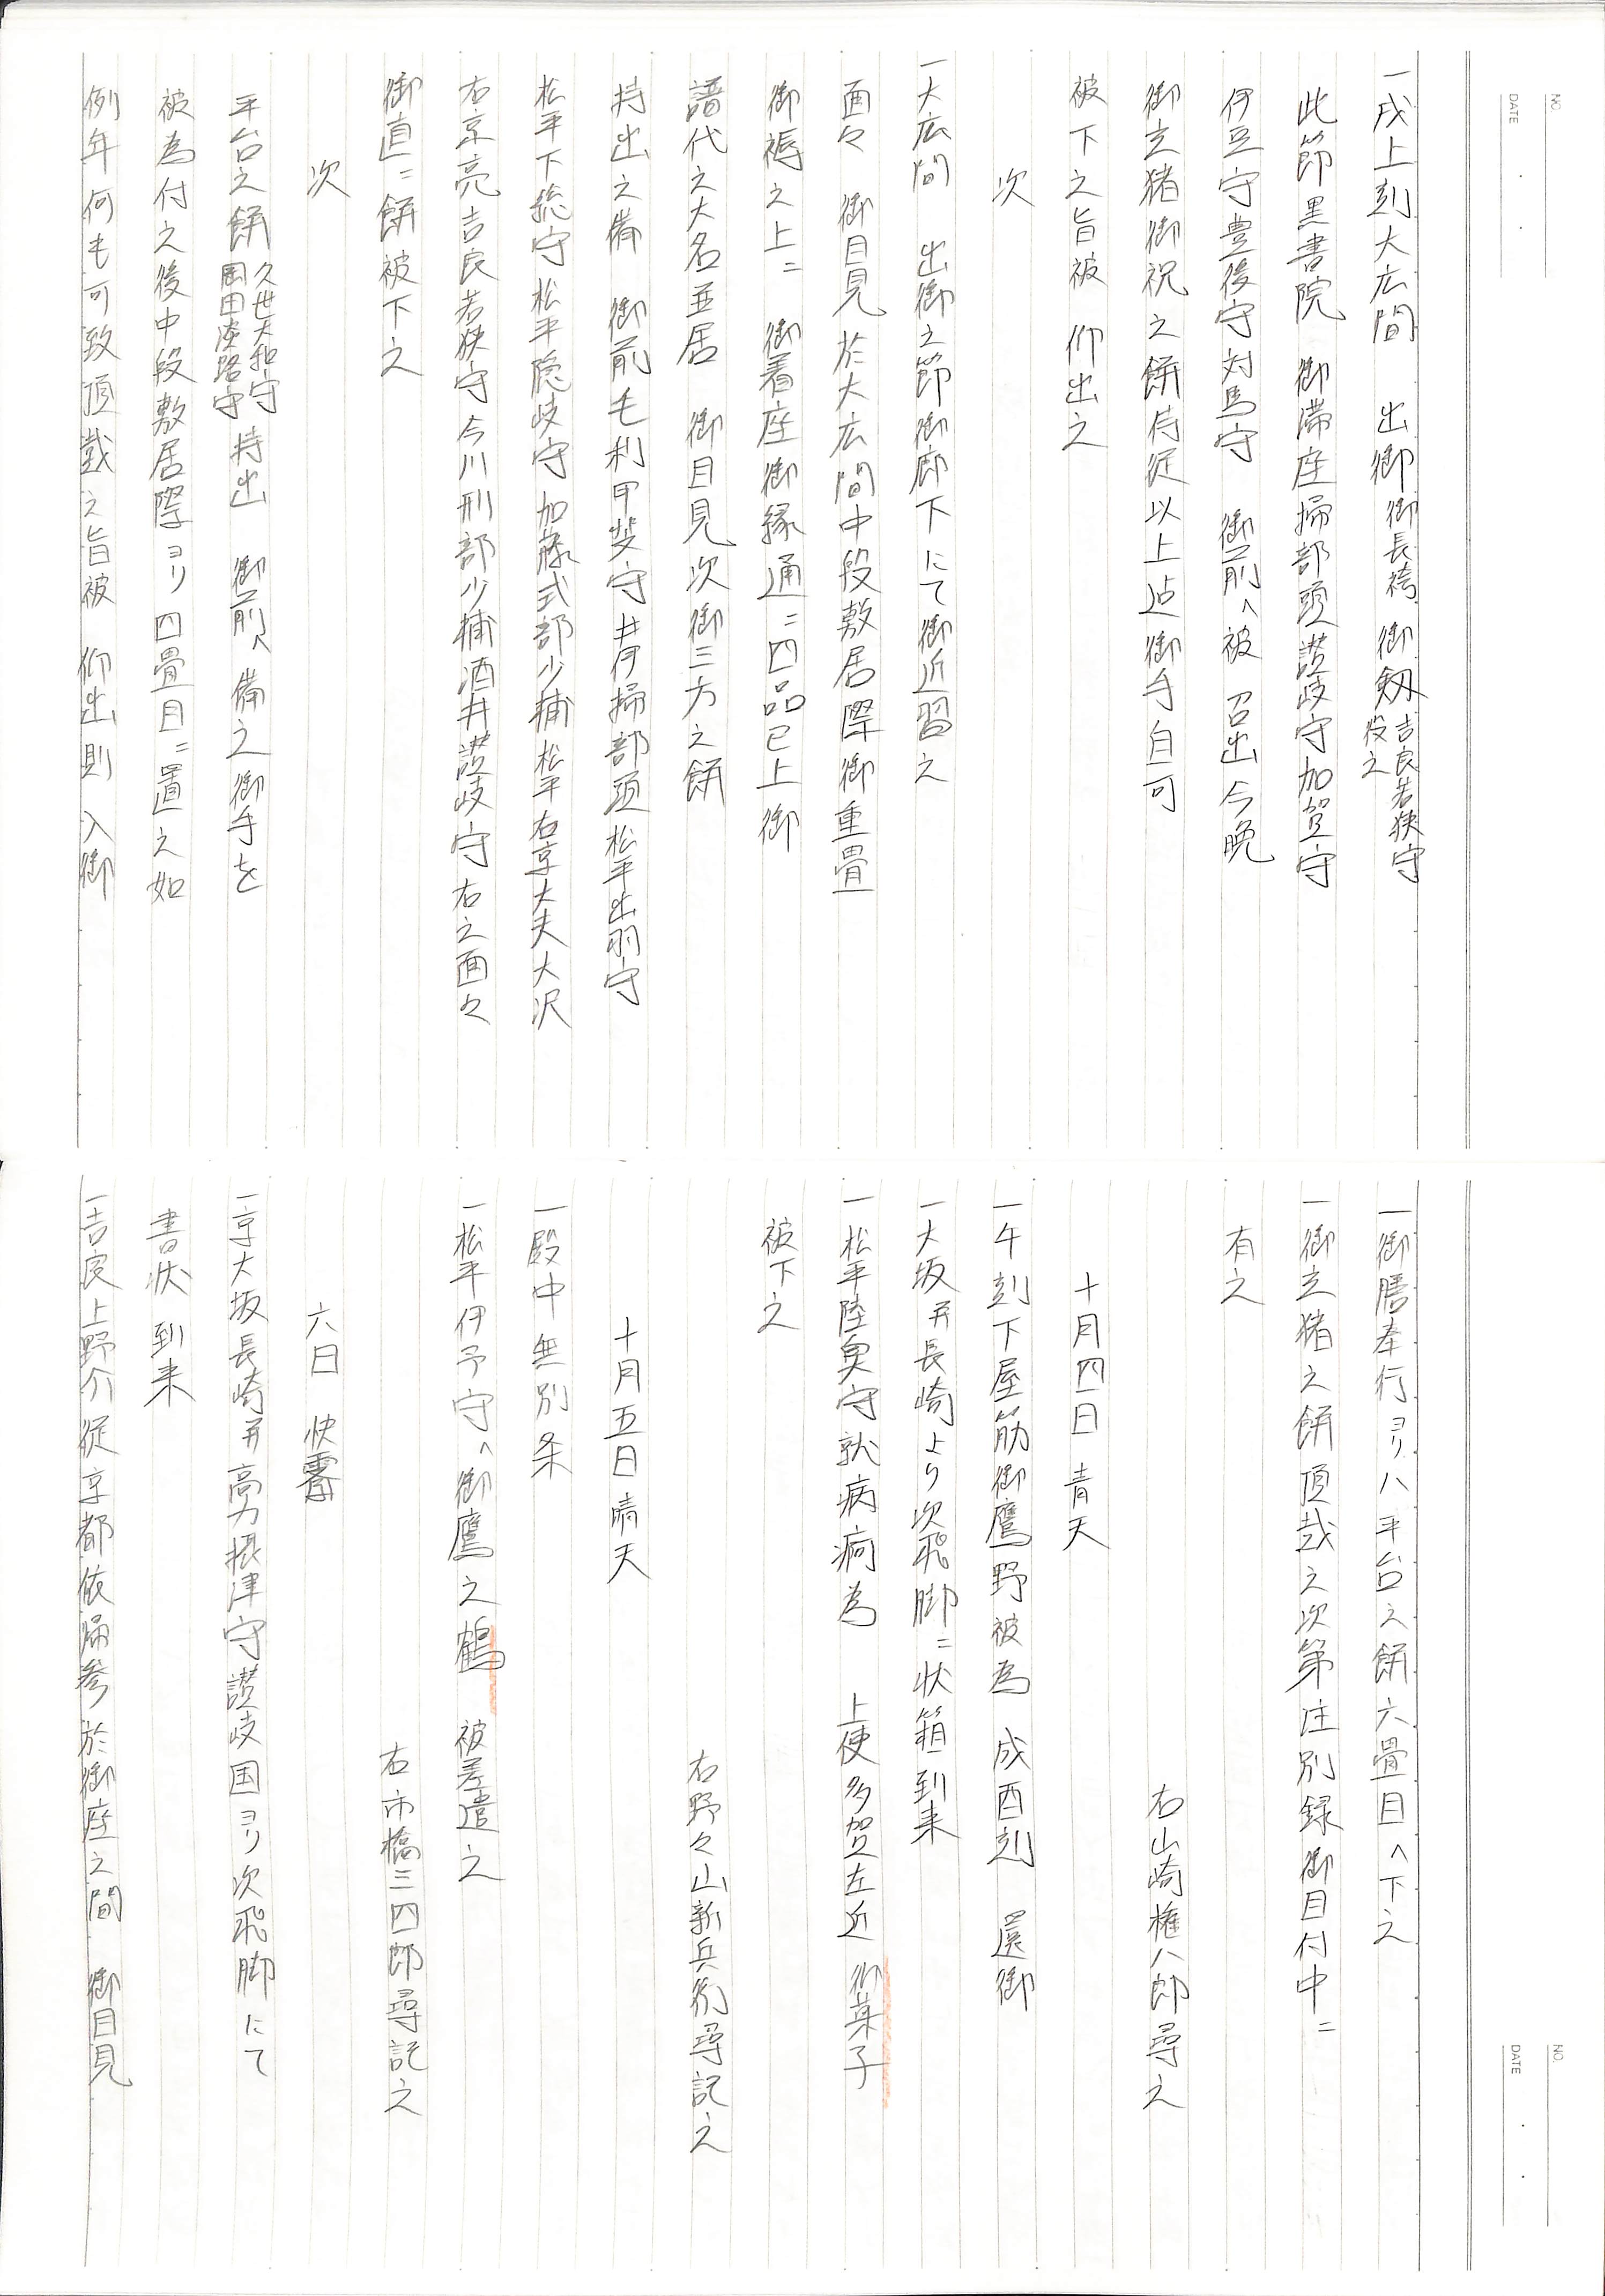 NO.
DATE
一戌上刻大広間　出御御長袴　御剱吉良若狭守役之
此節黒書院　御滞座掃部頭讃岐守加賀守
伊豆守豊後守対馬守　御前へ被　召出今晩
御玄猪御祝之餅侍従以上迠御手自可
被下之旨被　仰出之
次
一大広間　出御之節御廊下にて御近習之
面々　御目見於大広間中段敷居際御重畳
御褥之上ニ　御着座御縁通ニ四品已上御
譜代之大名並居　御目見次御三方之餅
持出之備　御前毛利甲斐守井伊掃部頭松平出羽守
松平下総守松平隠岐守加藤式部少輔松平右京大夫大沢
右京亮吉良若狭守今川刑部少輔酒井讃岐守右之面々
御直ニ餅被下之
次
平台之餅久世大和守岡田淡路守持出　御前へ備之御手を
被為付之後中段敷居際ヨリ四畳目ニ置之如
例年何も可致頂戴之旨被　仰出則　入御
NO.
DATE
一御膳奉行ヨリハ平台之餅六畳目へ下之
一御玄猪之餅頂戴之次第注別録御目付中ニ
有之
右山崎権八郎尋之
十月四日　青天
一午刻下屋筋御鷹野被為　成酉刻　還御
一大坂并長崎より次飛脚ニ状箱到来
一松平陸奥守就病痾為　上使多賀左近　御菓子
被下之
右野々山新兵衛尋記之
十月五日　晴天
一殿中無別条
一松平伊予守へ御鷹之鶴　被差遣之
右市橋三四郎尋記之
六日　快霽
一京大坂長崎并高力摂津守讃岐国ヨリ次飛脚にて
書状到来
一吉良上野介従京都依帰参於御座之間　御目見